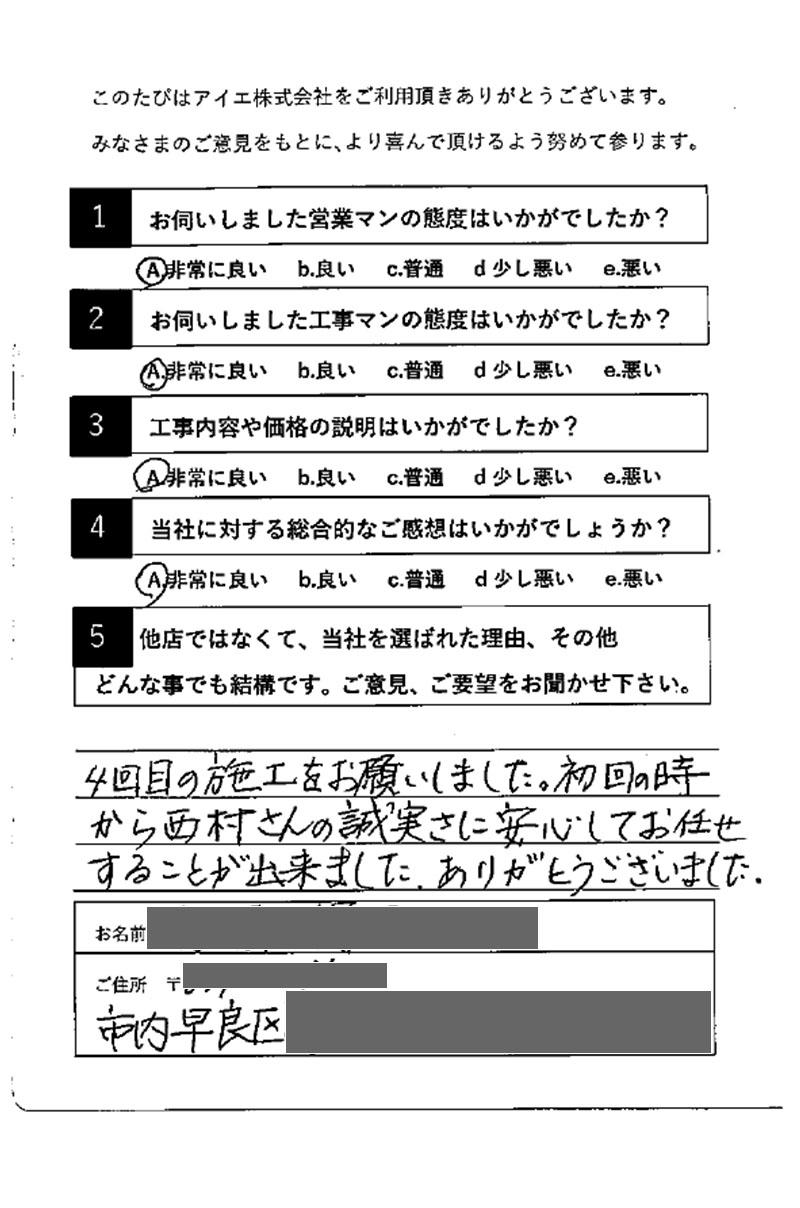 このたびはアイエ株式会社をご利用頂きありがとうございます。
みなさまのご意見をもとに、より喜んで頂けるよう努めて参ります。
1 お伺いしました営業マンの態度はいかがでしたか？
A.非常に良い b.良い c.普通 d 少し悪い e.悪い
2 お伺いしました工事マンの態度はいかがでしたか？
A.非常に良い b.良い c.普通 d 少し悪い e.悪い
3 工事内容や価格の説明はいかがでしたか？
A.非常に良い b.良い c.普通 d 少し悪い e.悪い
4 当社に対する総合的なご感想はいかがでしょうか？
A.非常に良い b.良い c.普通 d 少し悪い e.悪い
5 他店ではなくて、当社を選ばれた理由、その他
どんな事でも結構です。ご意見、ご要望をお聞かせ下さい。
4回目の施工をお願いしました。初回の時
から西村さんの誠実さに安心してお任せ
することが出来ました。ありがとうございました.
お名前
ご住所 〒
市内早良区